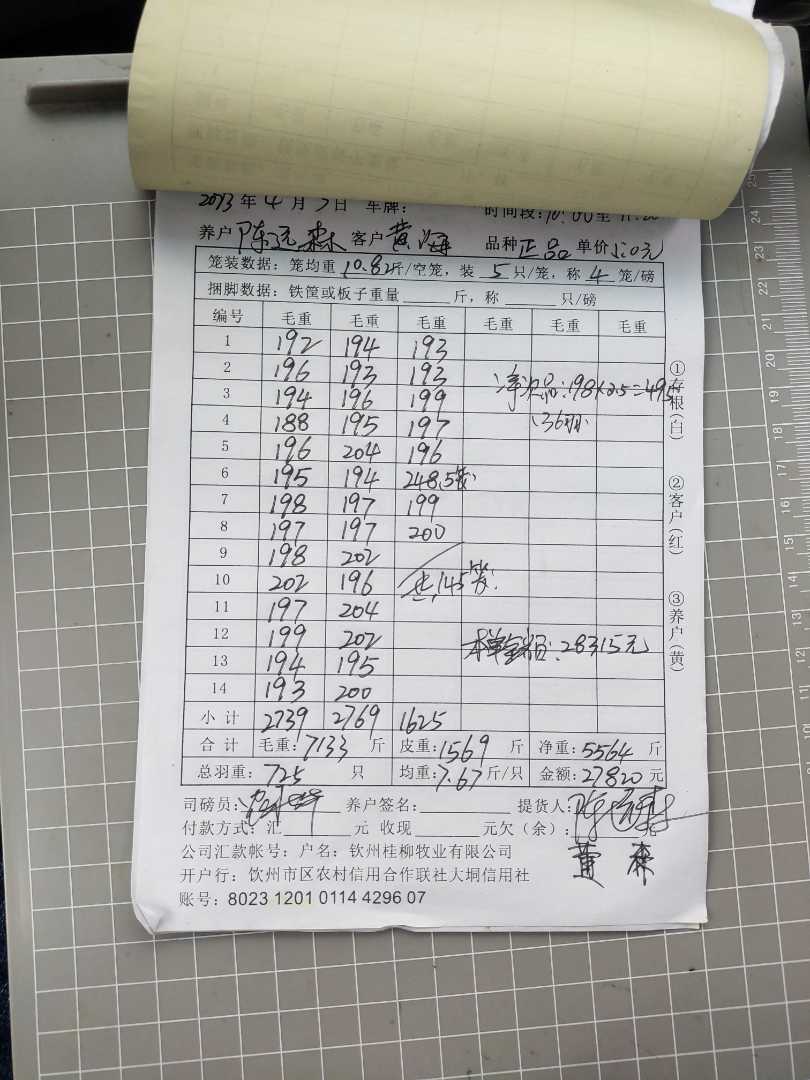 2023年4月5日 车牌: 时间段:10:00至11:00
养户 陈 森 客户 黄海 品种 正品 单价 5.0元
笼装数据：笼均重 10.82斤/空笼，装 5 只/笼，称 4 笼/磅
捆脚数据：铁筐或板子重量____斤，称____只/磅
编号 毛重 毛重 毛重 毛重 毛重 毛重
1 192 194 193
2 196 193 193 净次品:198×2.5=495
3 194 196 199
4 188 195 197 (36羽)
5 196 204 196
6 195 194 248.5
7 198 197 199
8 197 197 200
9 198 202
10 202 196 共145笼
11 197 204
12 199 202 本单金额:28315元
13 194 195
14 193 200
小计 2739 2769 1625
合计 毛重:7133 斤 皮重:1569 斤 净重:5564 斤
总羽重:725 只 均重:7.67斤/只 金额:27820元
司磅员: 养户签名:____ 提货人:
付款方式：汇____元 收现____元欠（余）:____元
公司汇款帐号：户名：钦州桂柳牧业有限公司
开户行：钦州市区农村信用合作联社大垌信用社
账号：8023 1201 0114 4296 07
①存根(白)
②客户(红)
③养户(黄)